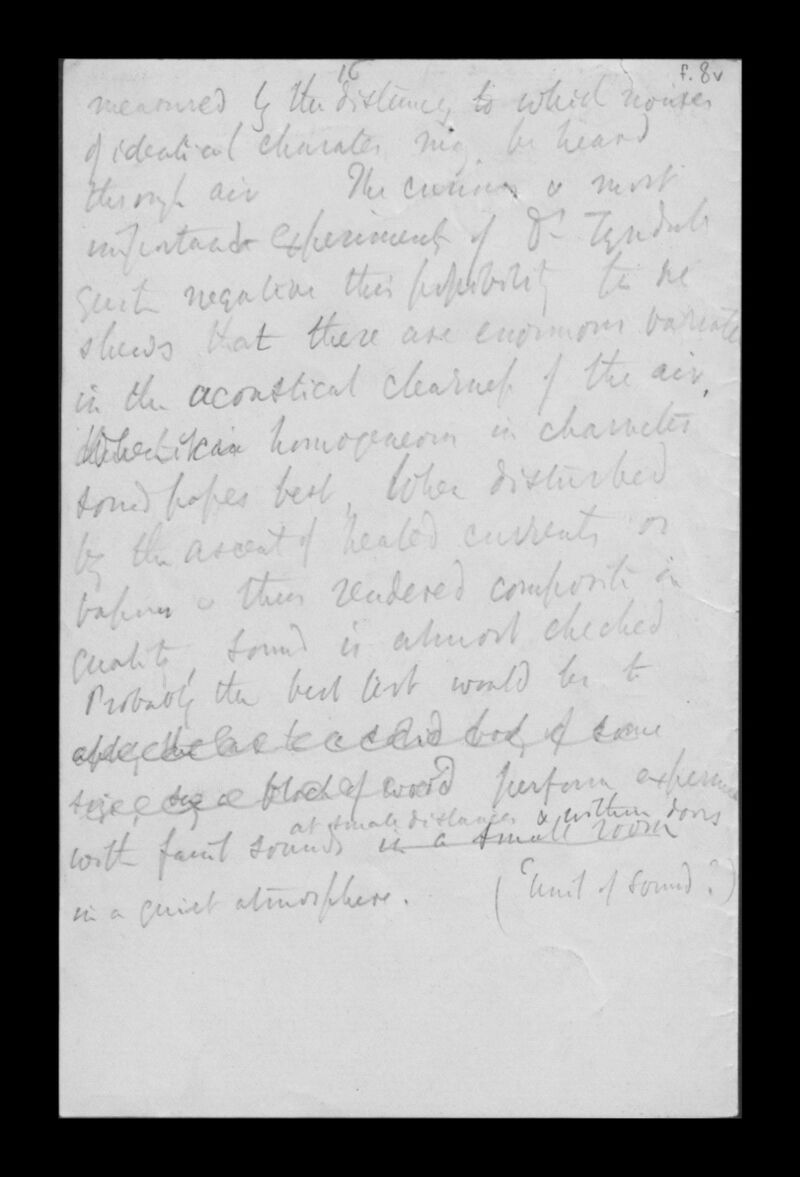 16
f. 8v
measured by the distances to which noises
of identical character may be heard
through air The curious & most
important experiments of Dr Tyndale
quite negative this possibility he
shews that there are enormous
in the acoustical clearness of the air.
When homogeneous in character
sound passes best, When disturbed
by the ascent of heated currents or
vapours & thus rendered composite in
quality, sound is almost checked
Probably the best test would be to
a solid body of some
size, say a block of wood perform
at small distances & within doors
with faint sounds in a small room
in a quiet atmosphere. (Unit of Sound?)